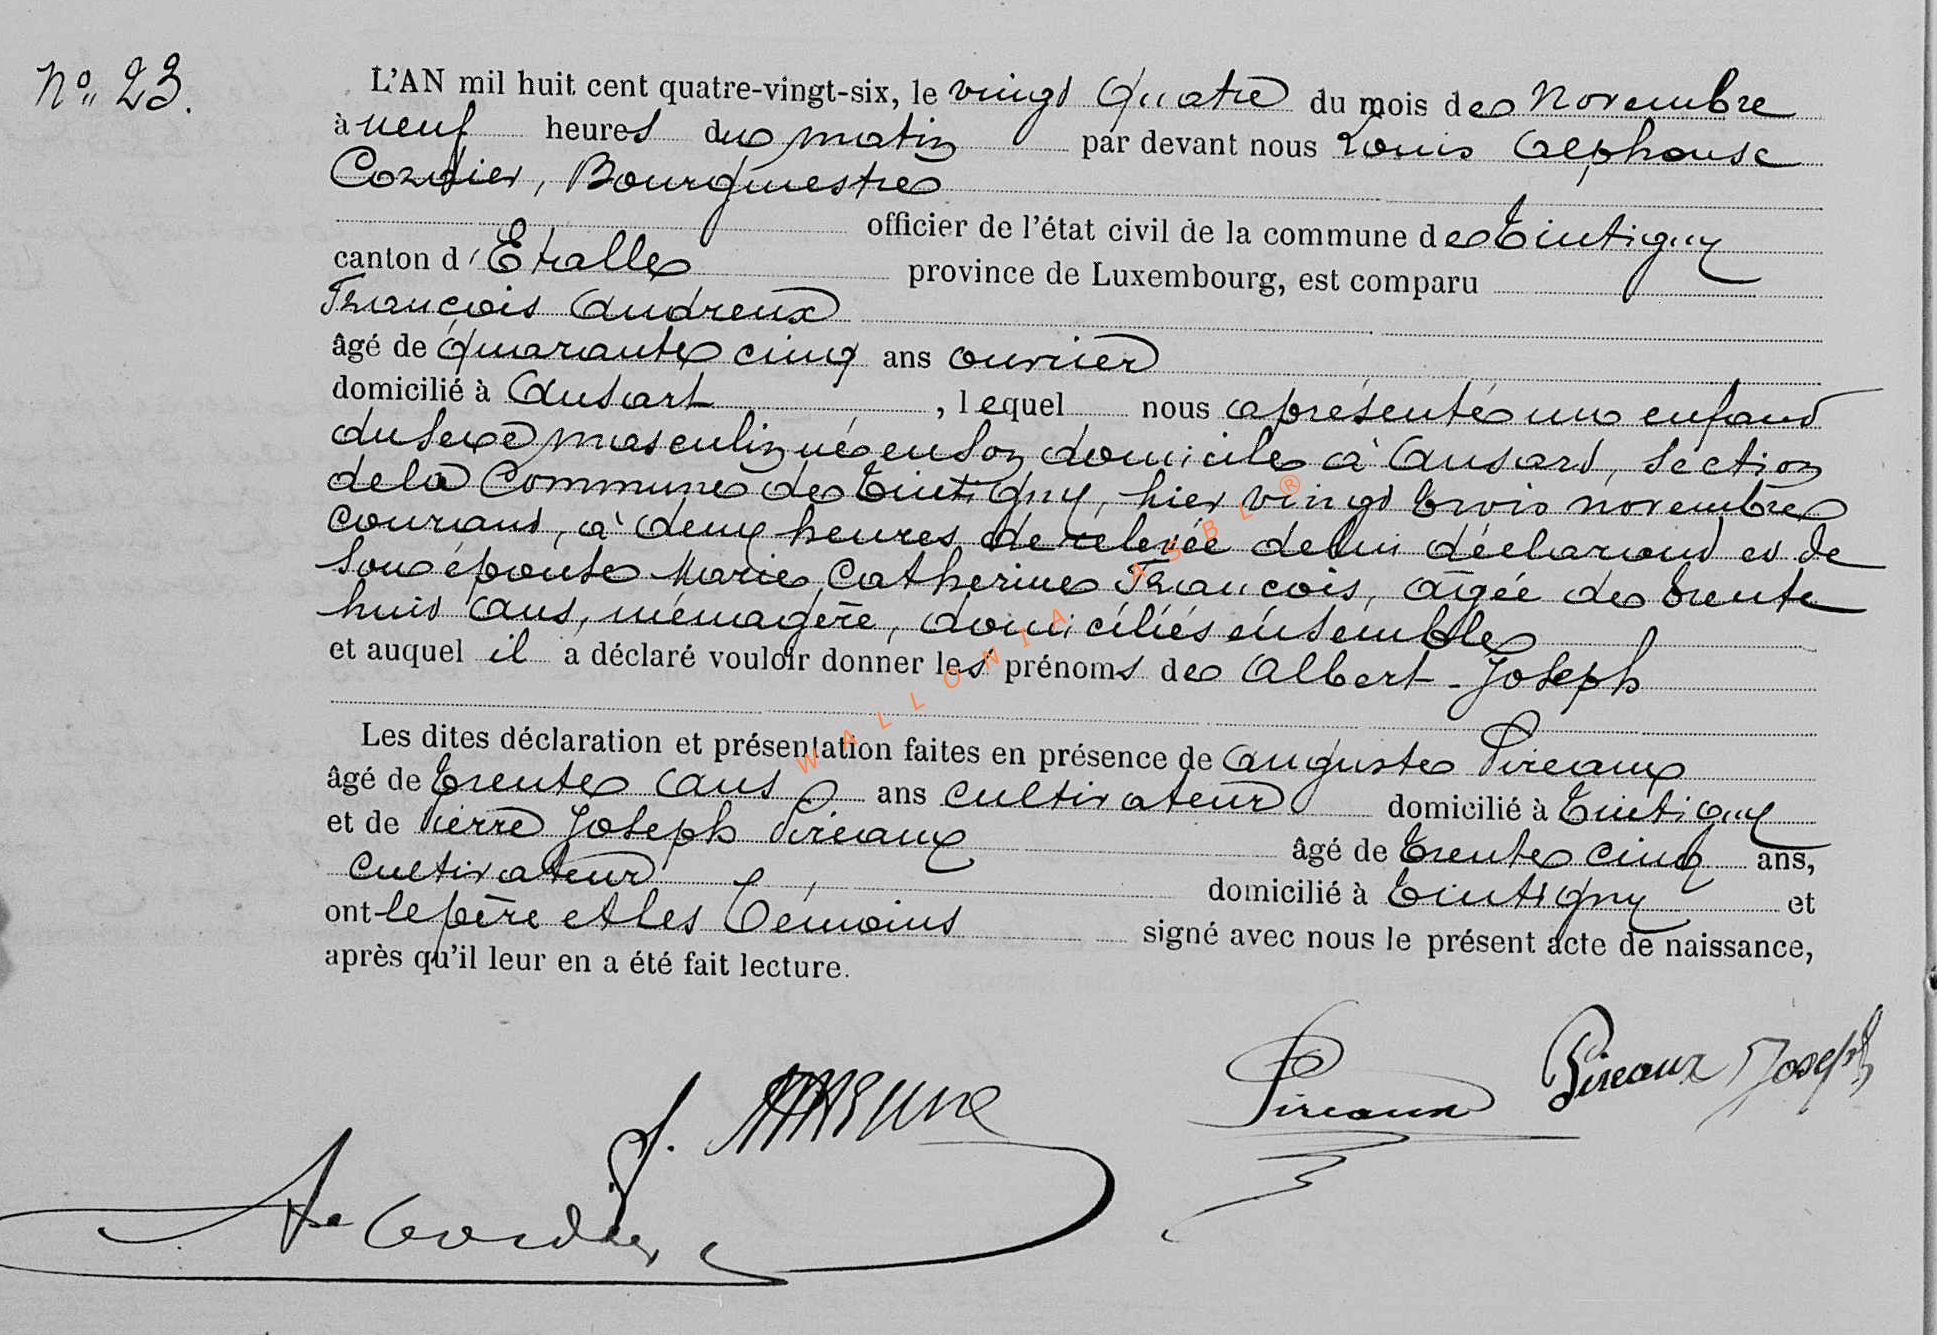 N° 23.
L'AN mil huit cent quatre-vingt-six, le vingt quatre du mois de Novembre
à neuf heures du matin par devant nous Louis Alphonse
Cordier, Bourgmestre
officier de l'état civil de la commune de Tintigny
canton d'Etalle province de Luxembourg, est comparu
François Andreux
âgé de quarante cinq ans ouvrier
domicilié à Ansart, lequel nous a présenté un enfant
du sexe masculin né en son domicile à Ansart, section
de la Commune de Tintigny, hier vingt trois novembre
courant, à deux heures de relevée de lui déclarant et de
son épouse Marie Catherine François, âgée de trente
huit ans, ménagère, domiciliés ensemble
et auquel il a déclaré vouloir donner les prénoms de Albert-Joseph
Les dites déclaration et présentation faites en présence de Auguste Pireaux
âgé de trente ans ans cultivateur domicilié à Tintigny
et de Pierre Joseph Pireaux âgé de trente cinq ans,
cultivateur domicilié à Tintigny et
ont le père et les témoins signé avec nous le présent acte de naissance,
après qu'il leur en a été fait lecture.
Pireaux Pireaux Joseph
A Cordier
WALLONIA ASBL ®